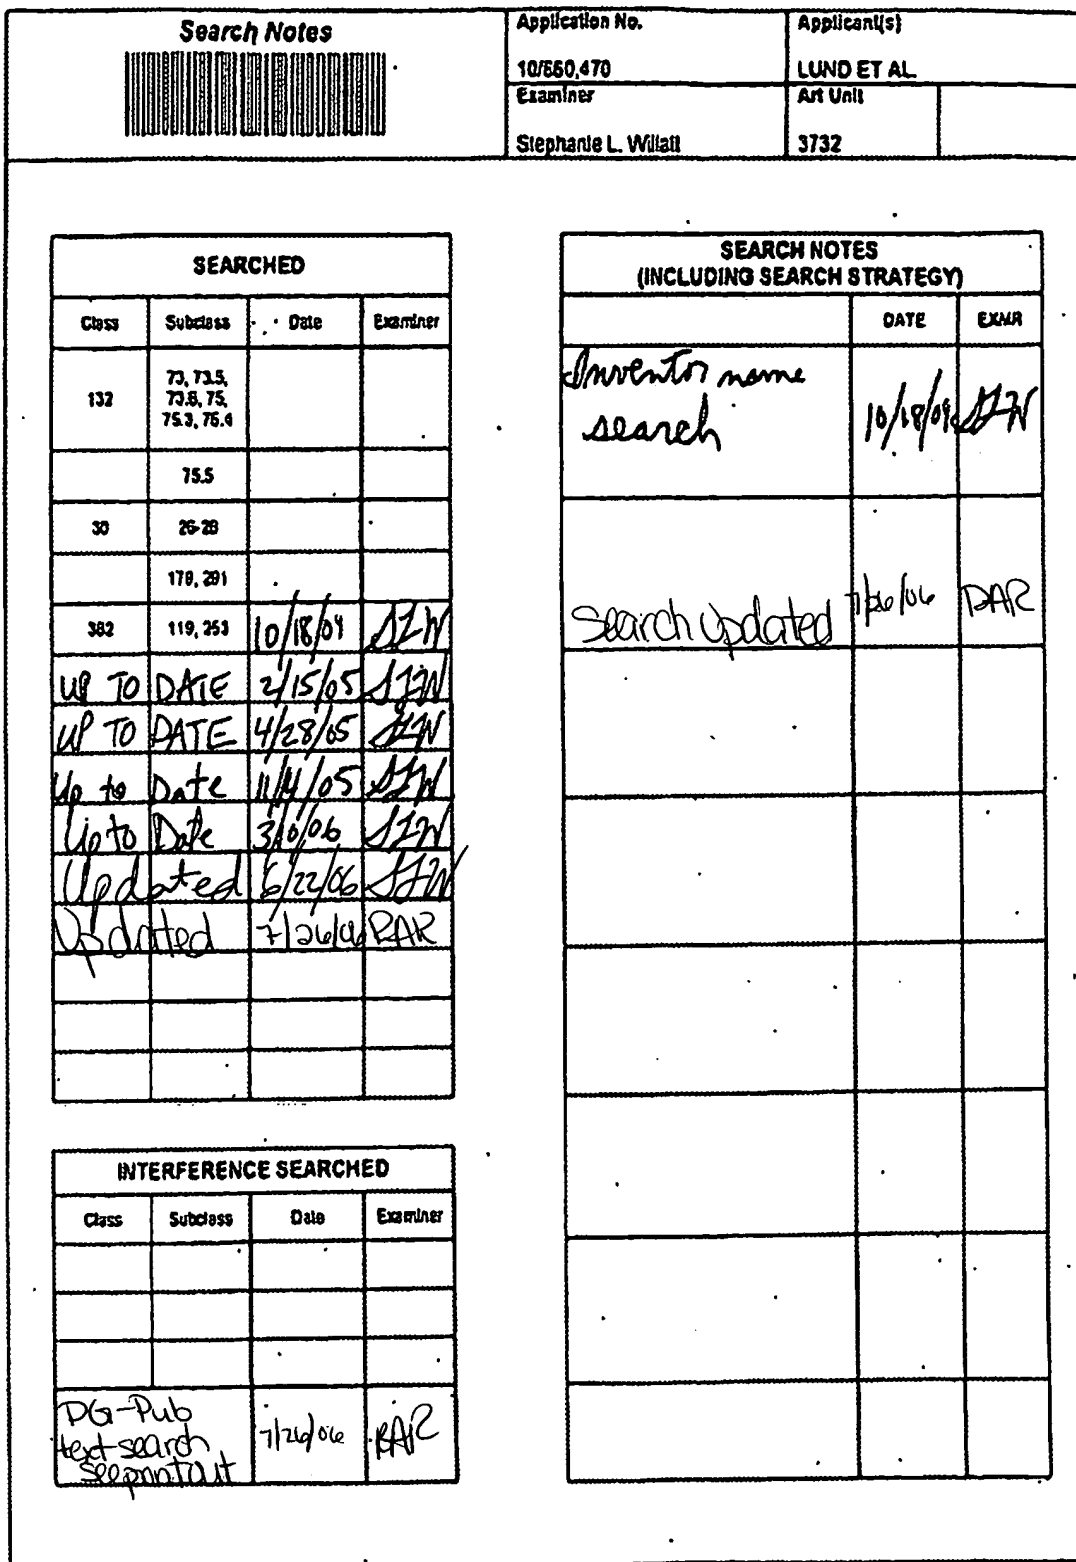 Search Notes
Application No.
Applicant(s)
10/660,470
LUND ET AL.
Examiner
Art Unit
Stephanie L. Willatt
3732
SEARCHED
Class Subclass Date Examiner
132
73, 73.5,
73.6, 75,
75.3, 76.4
75.5
30 26-28
178, 291
382 119, 253 10/18/04 SLW
UP TO DATE 2/15/05 SLW
UP TO DATE 4/28/05 SLW
Up to Date 11/4/05 SLW
Up to Date SLW
Updated 6/22/06 SLW
Updated 7/26/06 RAR
INTERFERENCE SEARCHED
Class Subclass Date Examiner
PG-Pub
text search
see printout
7/26/06 RAR
SEARCH NOTES
(INCLUDING SEARCH STRATEGY)
DATE EXMR
Inventor name
search
10/18/04 SLW
Search updated 7/26/06 RAR